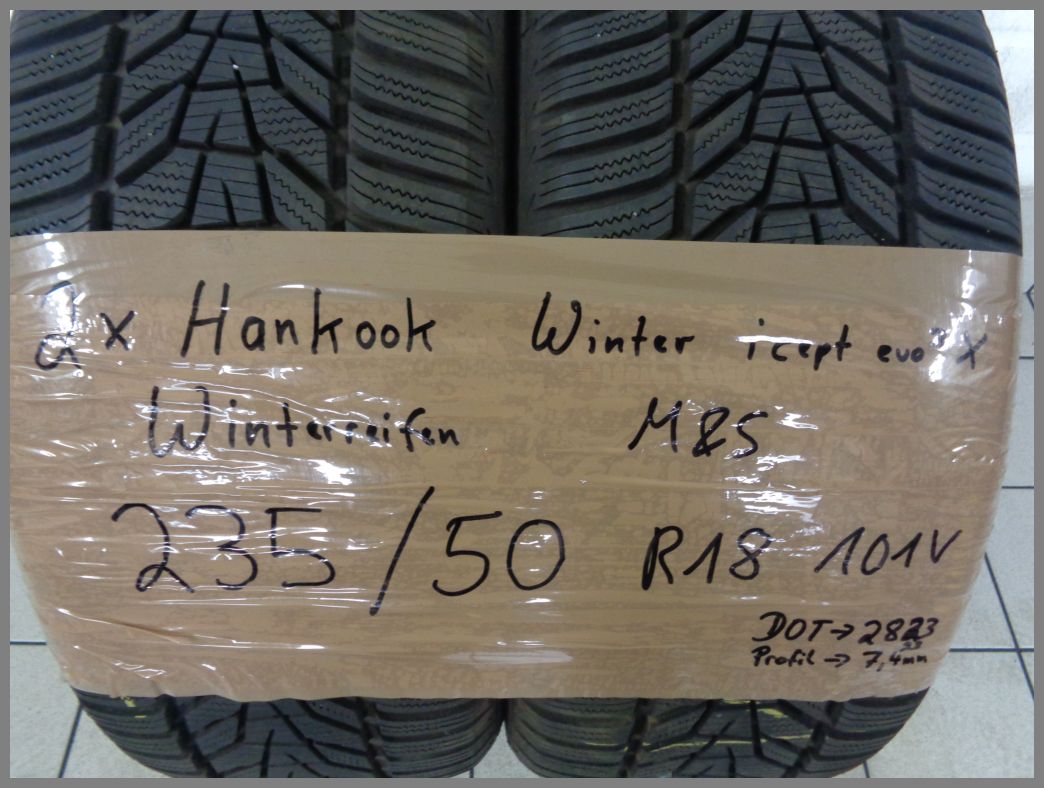 2x Hankook Winter icept evo³ X
Winterreifen M&S
235/50 R18 101V
DOT→2823
Profil→7,4mm